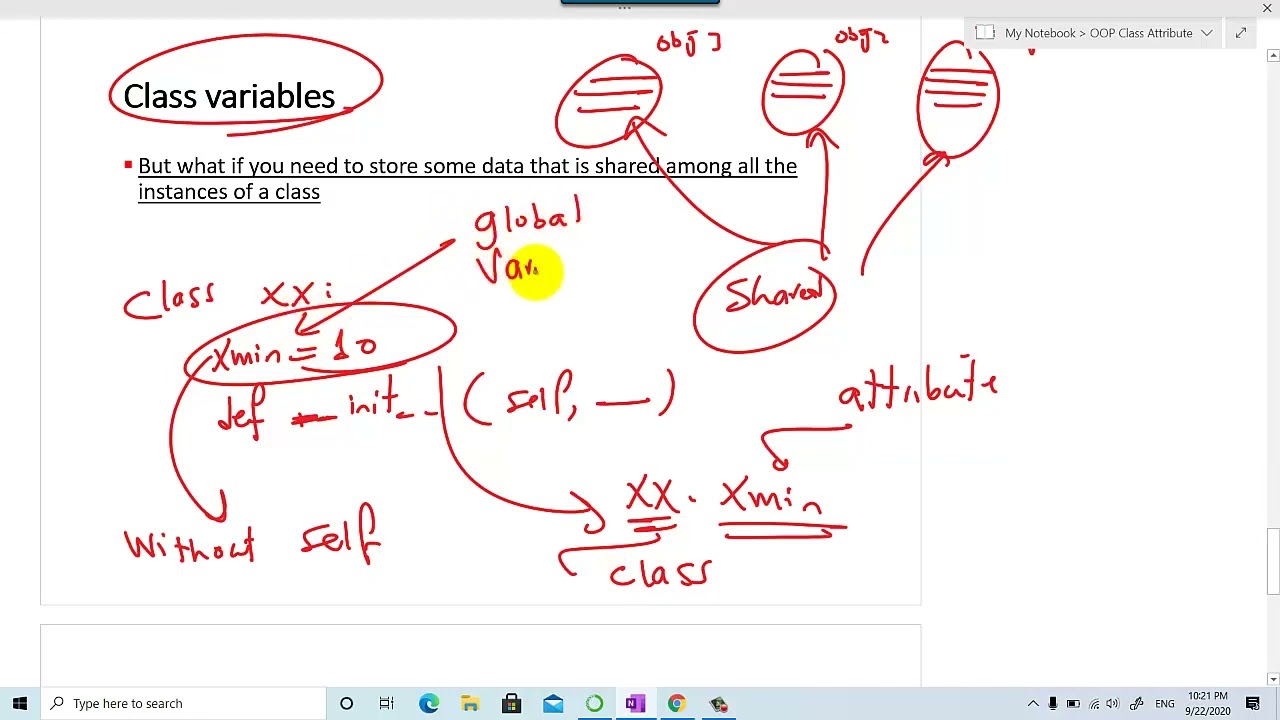 My Notebook > OOP Class Attribute
obj 1
obj 2
Class variables
But what if you need to store some data that is shared among all the
instances of a class
global
Var
Class XX:
Shared
Xmin = 10
def __init__ (self, __)
attribute
XX. Xmin
Without self
class
Type here to search
ENG
10:21 PM
9/22/2020